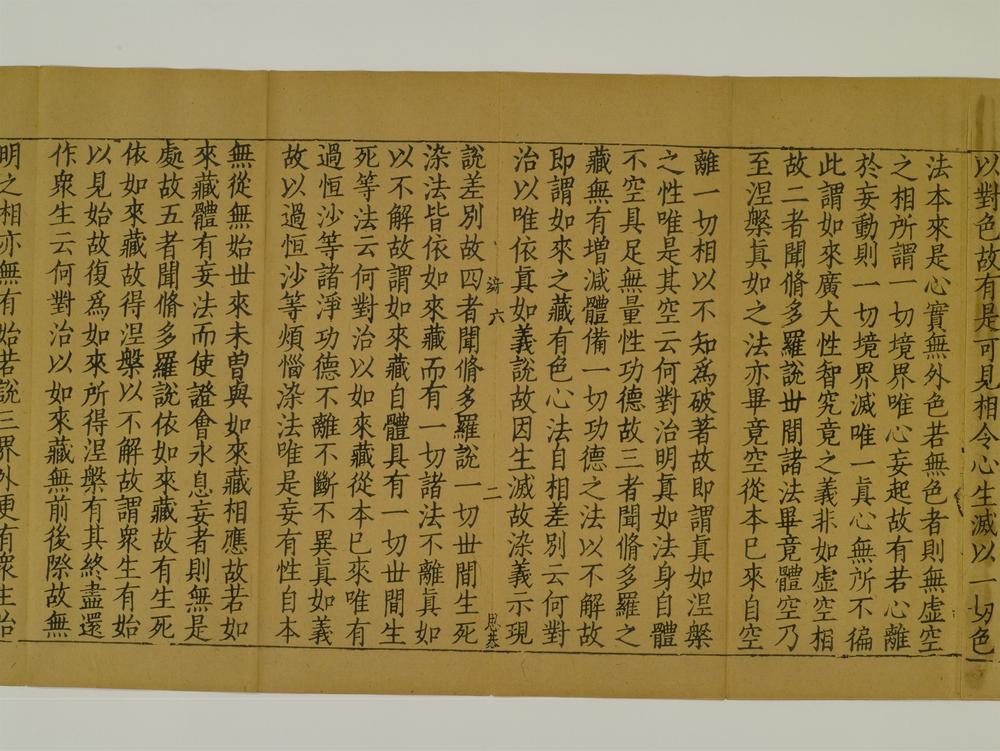 以對色故有是可見相令心生滅以一切色
法本來是心實無外色若無色者則無虛空
之相所謂一切境界唯心妄起故有若心離
於妄動則一切境界滅唯一真心無所不徧
此謂如來廣大性智究竟之義非如虛空相
故二者聞脩多羅說丗間諸法畢竟體空乃
至涅槃真如之法亦畢竟空從本已來自空
離一切相以不知為破著故即謂真如涅槃
之性唯是其空云何對治明真如法身自體
不空具足無量性功德故三者聞脩多羅之
藏無有增減體備一切功德之法以不解故
即謂如來之藏有色心法自相差別云何對
治以唯依真如義說故因生滅故染義示現
綺六 二 思恭
說差別故四者聞脩多羅說一切丗間生死
染法皆依如來藏而有一切諸法不離真如
以不解故謂如來藏自體具有一切丗間生
死等法云何對治以如來藏從本已來唯有
過恒沙等諸淨功德不離不斷不異真如義
故以過恒沙等煩惱染法唯是妄有性自本
無從無始丗來未曾與如來藏相應故若如
來藏體有妄法而使證會永息妄者則無是
處故五者聞脩多羅說依如來藏故有生死
依如來藏故得涅槃以不解故謂眾生有始
以見始故復為如來所得涅槃有其終盡還
作眾生云何對治以如來藏無前後際故無
明之相亦無有始若說三界外更有眾生始